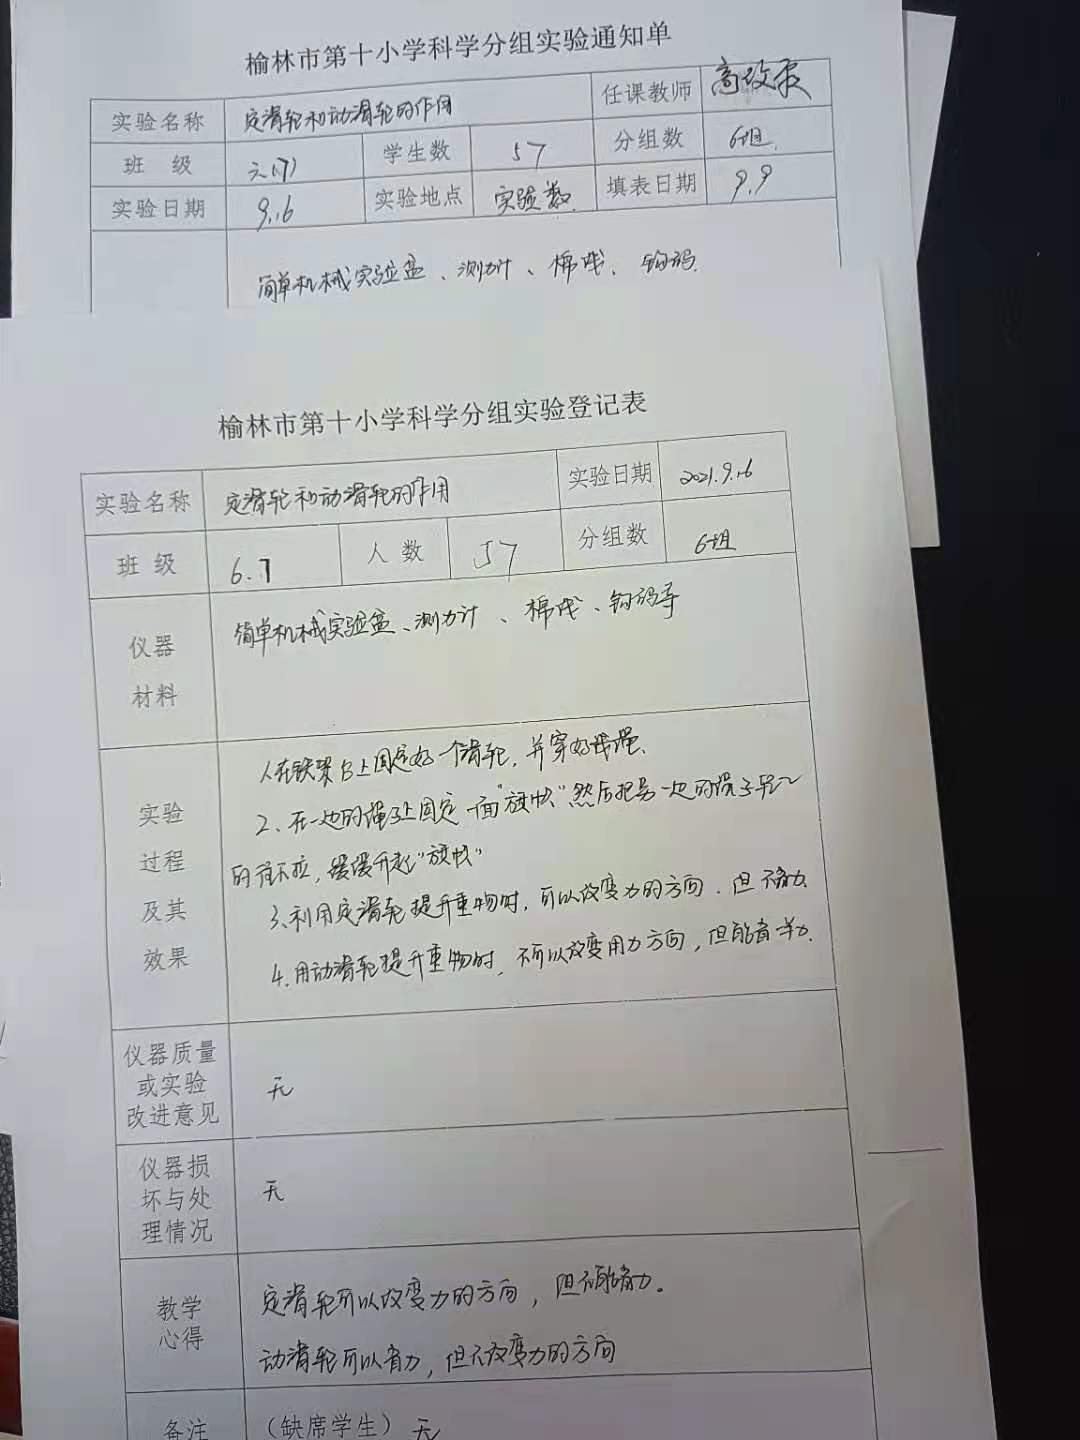 榆林市第十小学科学分组实验通知单
实验名称 定滑轮和动滑轮的作用 任课教师
班 级 学生数 57 分组数 6组
实验日期 9.16 实验地点 实验 填表日期 9.9
简单机械实验盒、测力计、棉线、钩码
榆林市第十小学科学分组实验登记表
实验名称 定滑轮和动滑轮的作用 实验日期 2021.9.16
班 级 6.7 人 数 57 分组数 6组
仪器
材料
简单机械实验盒、测力计、棉线、钩码等
实验
过程
及其
效果
1.在铁架台上固定好一个滑轮，并穿好线绳。
2、在一边的绳子上固定一面"旗帜"然后把另一边的绳子
的往下拉，缓缓升起"旗帜"
3、利用定滑轮提升重物时，可以改变力的方向．但不省力．
4.用动滑轮提升重物时，不可以改变用力方向，但能省一半力．
仪器质量
或实验
改进意见
无
仪器损
坏与处
理情况
无
教学
心得
定滑轮可以改变力的方向，但不能省力。
动滑轮可以省力，但不改变力的方向
备注 （缺席学生）无